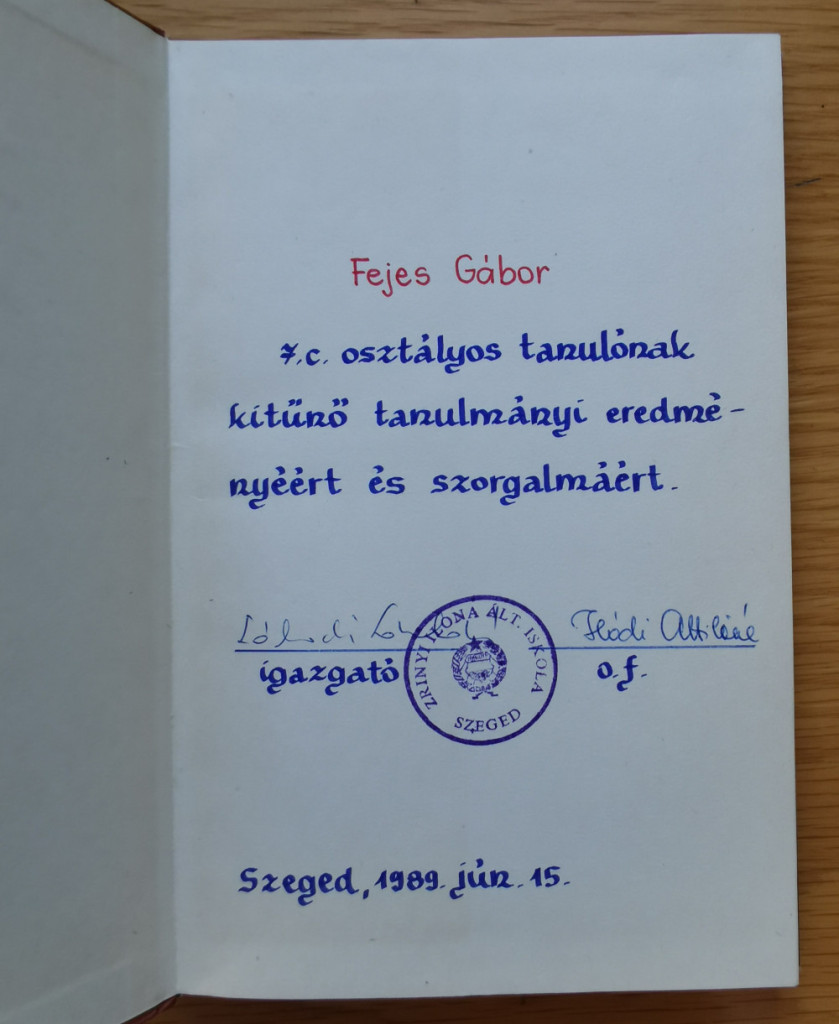 Fejes Gábor
7.c. osztályos tanulónak
kitűnő tanulmányi eredmé-
nyéért és szorgalmáért.
Hódi Attiláné
igazgató
ZRINYI ILONA ÁLT. ISKOLA
SZEGED
o.f.
Szeged, 1989. jún. 15.